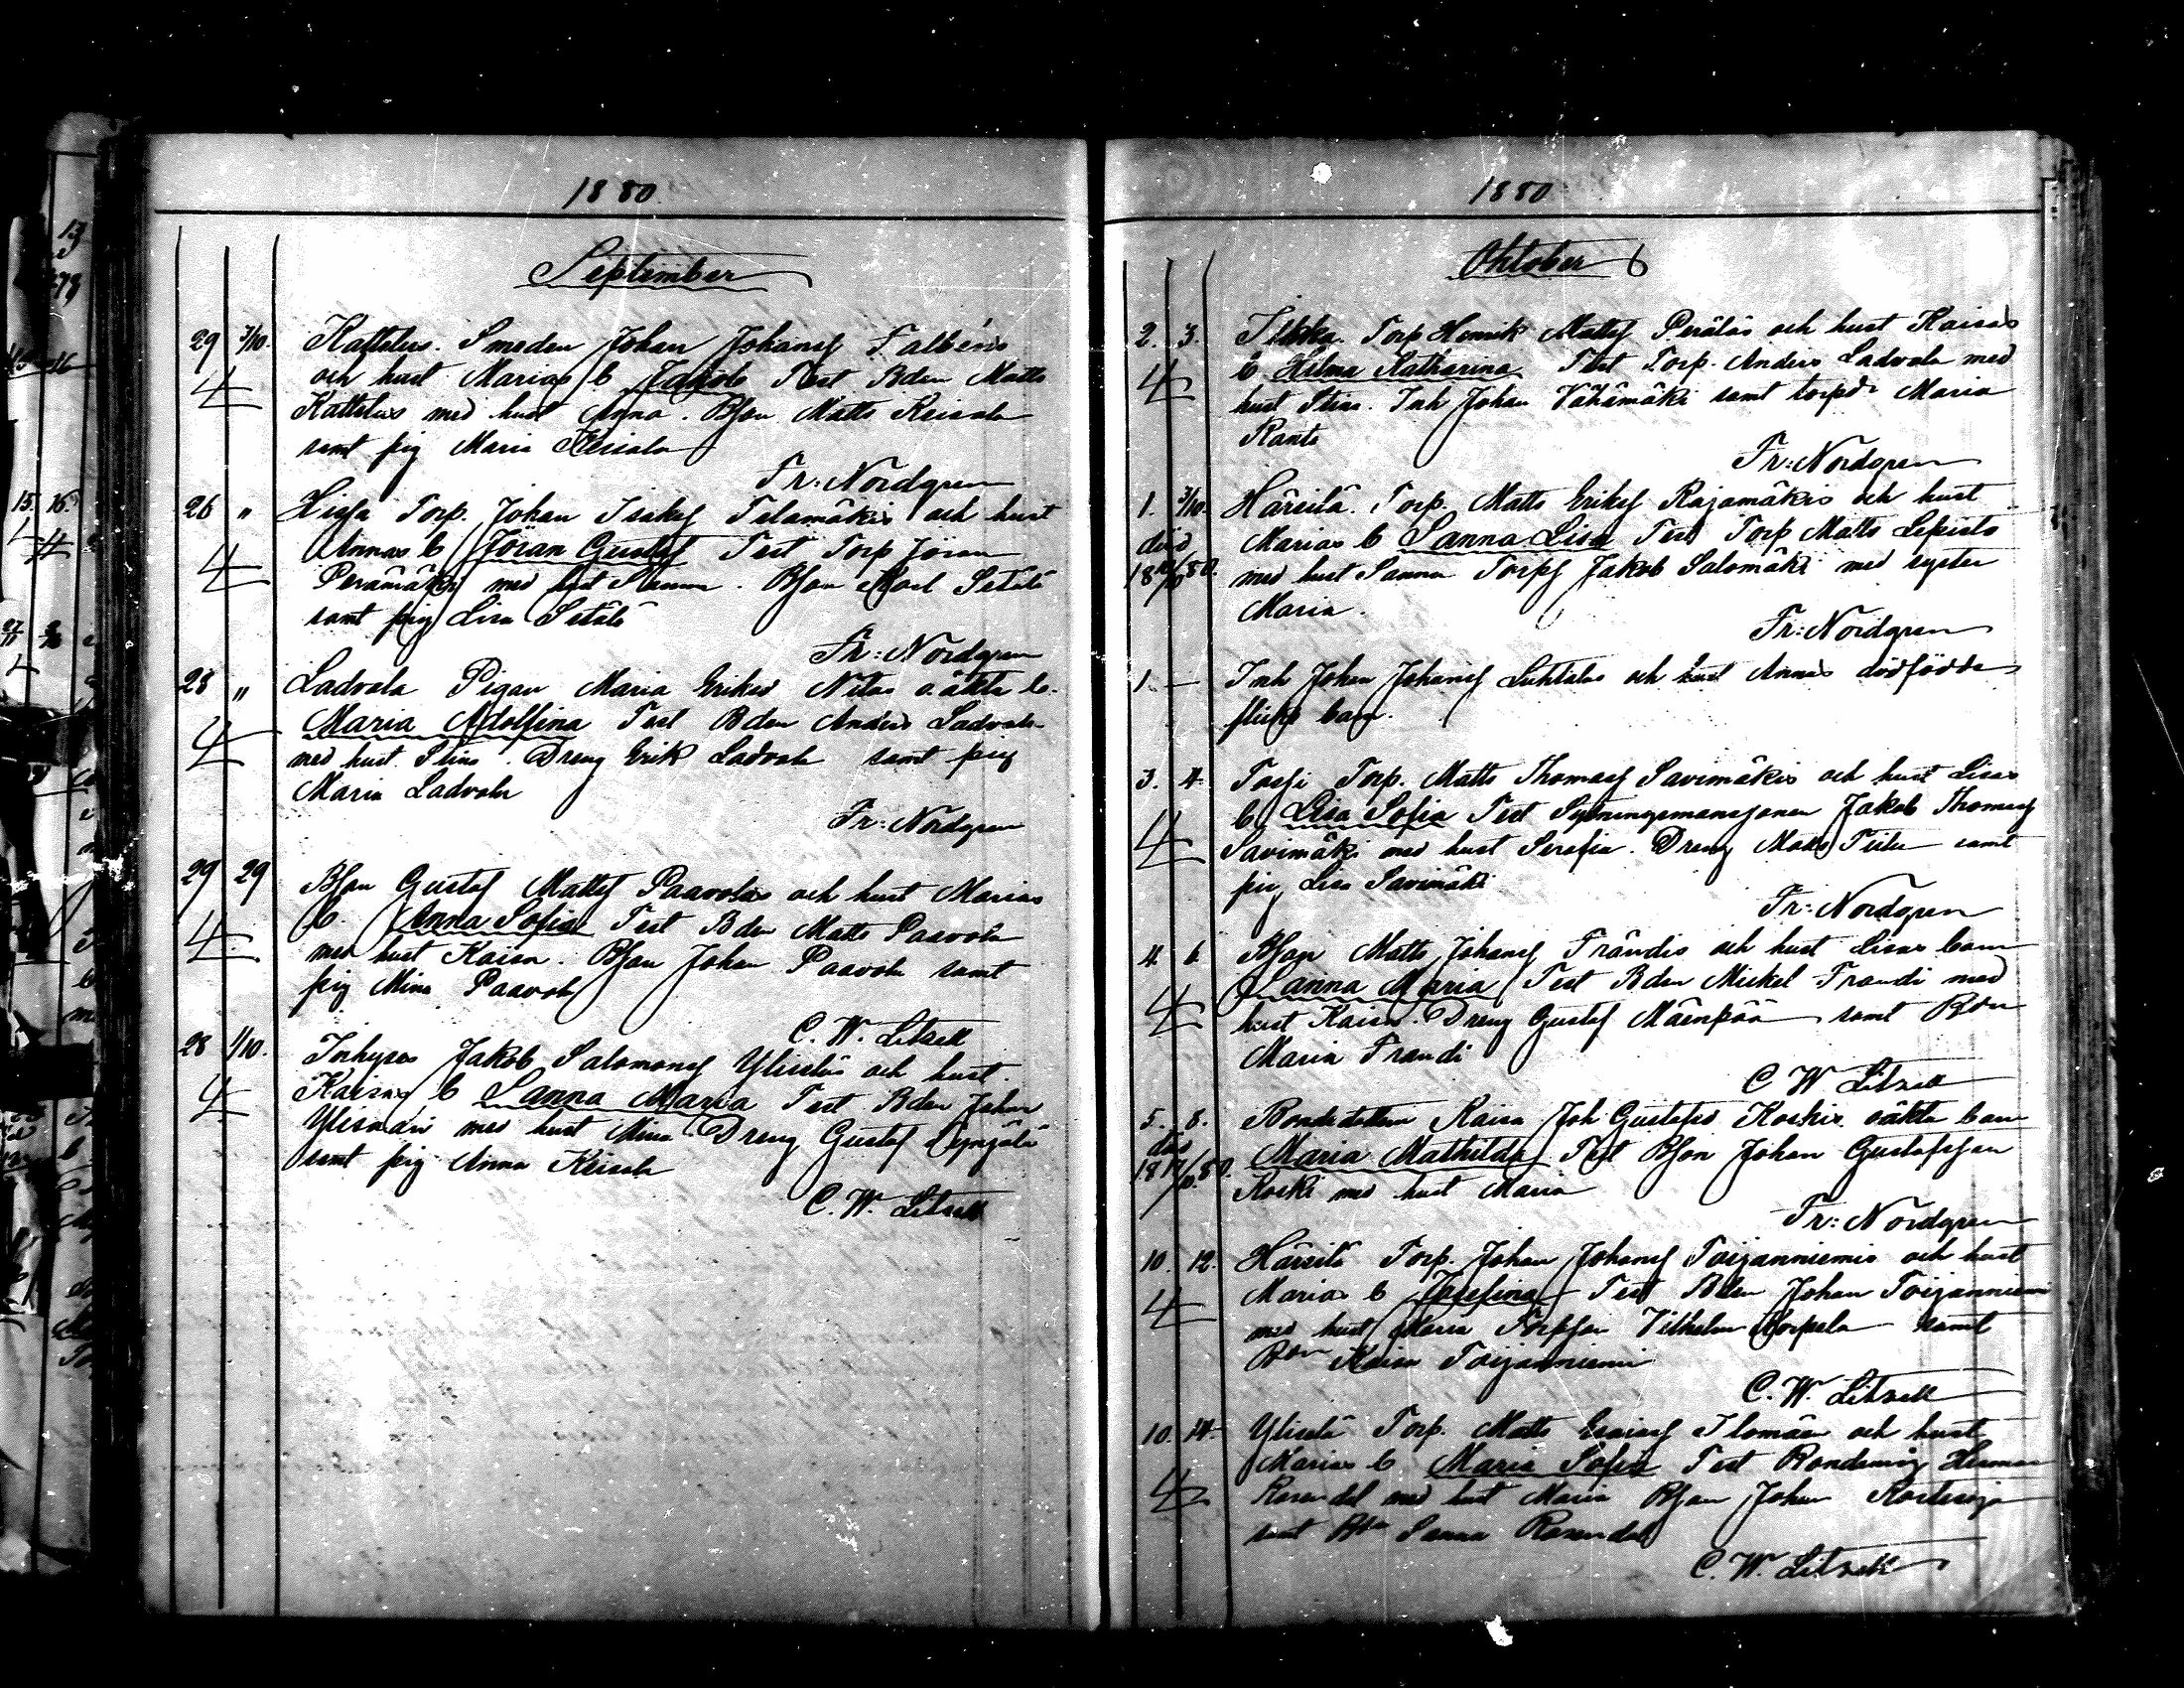 1880
September
29 3/10. Kattelus. Smeden Johan Johansf Falléns
och hust Marias b Jakob Test Bden Matts
4 Kattelus med hust Anna. Bson Matts Keisala
samt pig Maria Keisala
Fr: Nordgren
26 " Hissa Torp. Johan Isaksf Telamäkis och hust
Annas b Jöran Gustaf Test Torp Jöran
4 Perämäki med hust Sanna. Bson Karl Setälä
samt pig Lisa Setälä
Fr: Nordgren
28 " Ladvala Pigan Maria Eriksd Nitas oäkta b.
4 Maria Adolfina Test Bden Anders Ladvala
med hust. Stina. Dreng Erik Ladvala samt pig
Maria Ladvala
Fr: Nordgren
29 29 Bson Gustaf Mattsf Paavolas och hust Marias
b. Anna Sofia Test Bden Matts Paavola
4 med hust Kaisa. Bson Johan Paavola samt
pig Mina Paavola
C. W. Litzell
28 1/10. Inhyses Jakob Salomonsf Yliseläs och hust.
4 Kaisas b Sanna Maria Test Bden Johan
med hust Mina Dreng Gustaf
samt pig Anna Keisala
C. W. Litzell
1880
Oktober
2. 3. Torp Henrik Mattsf Peräläs och hust Kaisas
4 b Hilma Katharina Test Torp. Anders Ladvala med
hust Stina. Inh Johan Vähämäki samt torpd Maria
Ranta
Fr: Nordgren
1. 3/10. Härsilä. Torp. Matts Eriksf Rajamäkis och hust
död Marias b Sanna Lisa Test Torp Matts Lepistö
18 /80. med hust Sanna Torps Jakob Salomäki med syster
Maria.
Fr: Nordgren
1. — Inh Johan Johansf Luhtalas och hust Annas dödfödda
flicke barn.
3. 4. Torp. Matts Thomasf Savimäkis och hust Lisas
b Lisa Sofia Test Sytningsmanssonen Jakob Thomasf
4 Savimäki med hust Serafia. Dreng Matts samt
pig Lisa Savimäki
Fr: Nordgren
4. 6. Bson Matts Johansf Frändis och hust Lisas barn
Sanna Maria Test Bden Mickel Frandi med
4 hust Kaisa. Dreng Gustaf Mäenpää samt Bdn
Maria Frandi
C W Litzell
5. 8. Bondedottern Kaisa Joh Gustafsd Koskis oäkta barn
död Maria Mathilda Test Bson Johan Gustafsson
18 /80. Koski med hust Maria
Fr: Nordgren
10. 12. Härsilä Torp. Johan Johansf Toijanniemis och hust
Marias b Josefina Test Bden Johan Toijanniemi
4 med hust Maria Torpson Vilhelm Korpela samt
Bdn Kaisa Toijanniemi
C. W. Litzell
10. 14. Yliselä Torp. Matts och hust
Marias b Maria Sofia Test Herman
4 Rosendal med hust Maria Bson Johan
samt Sanna Rosendal
C. W. Litzell